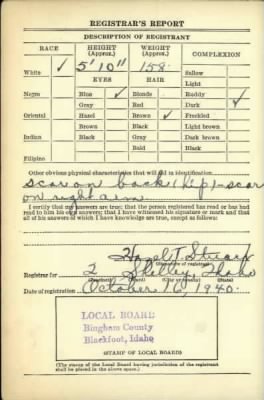 REGISTRAR'S REPORT
DESCRIPTION OF REGISTRANT
RACE HEIGHT (Approx.) WEIGHT (Approx.) COMPLEXION
White ✓ 5' 10" 158 Sallow
EYES HAIR Light
Negro Blue ✓ Blonde Ruddy
Gray Red Dark ✓
Oriental Hazel Brown ✓ Freckled
Brown Black Light brown
Indian Black Gray Dark brown
Bald Black
Filipino
Other obvious physical characteristics that will aid in identification
scar on back (hip) - scar
on right arm
I certify that my answers are true; that the person registered has read or has had
read to him his own answers; that I have witnessed his signature or mark and that
all of his answers of which I have knowledge are true, except as follows:
Hazel T. Stuart
(Signature of registrar)
Registrar for 2 Shelley, Idaho
(Precinct) (Ward) (City or county) (State)
Date of registration October 16, 1940.
LOCAL BOARD
Bingham County
Blackfoot, Idaho
(STAMP OF LOCAL BOARD)
(The stamp of the Local Board having jurisdiction of the registrant
shall be placed in the above space.)